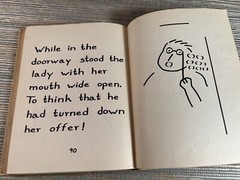 While in the
doorway stood the
lady with her
mouth wide open.
To think that he
had turned down
her offer!
90